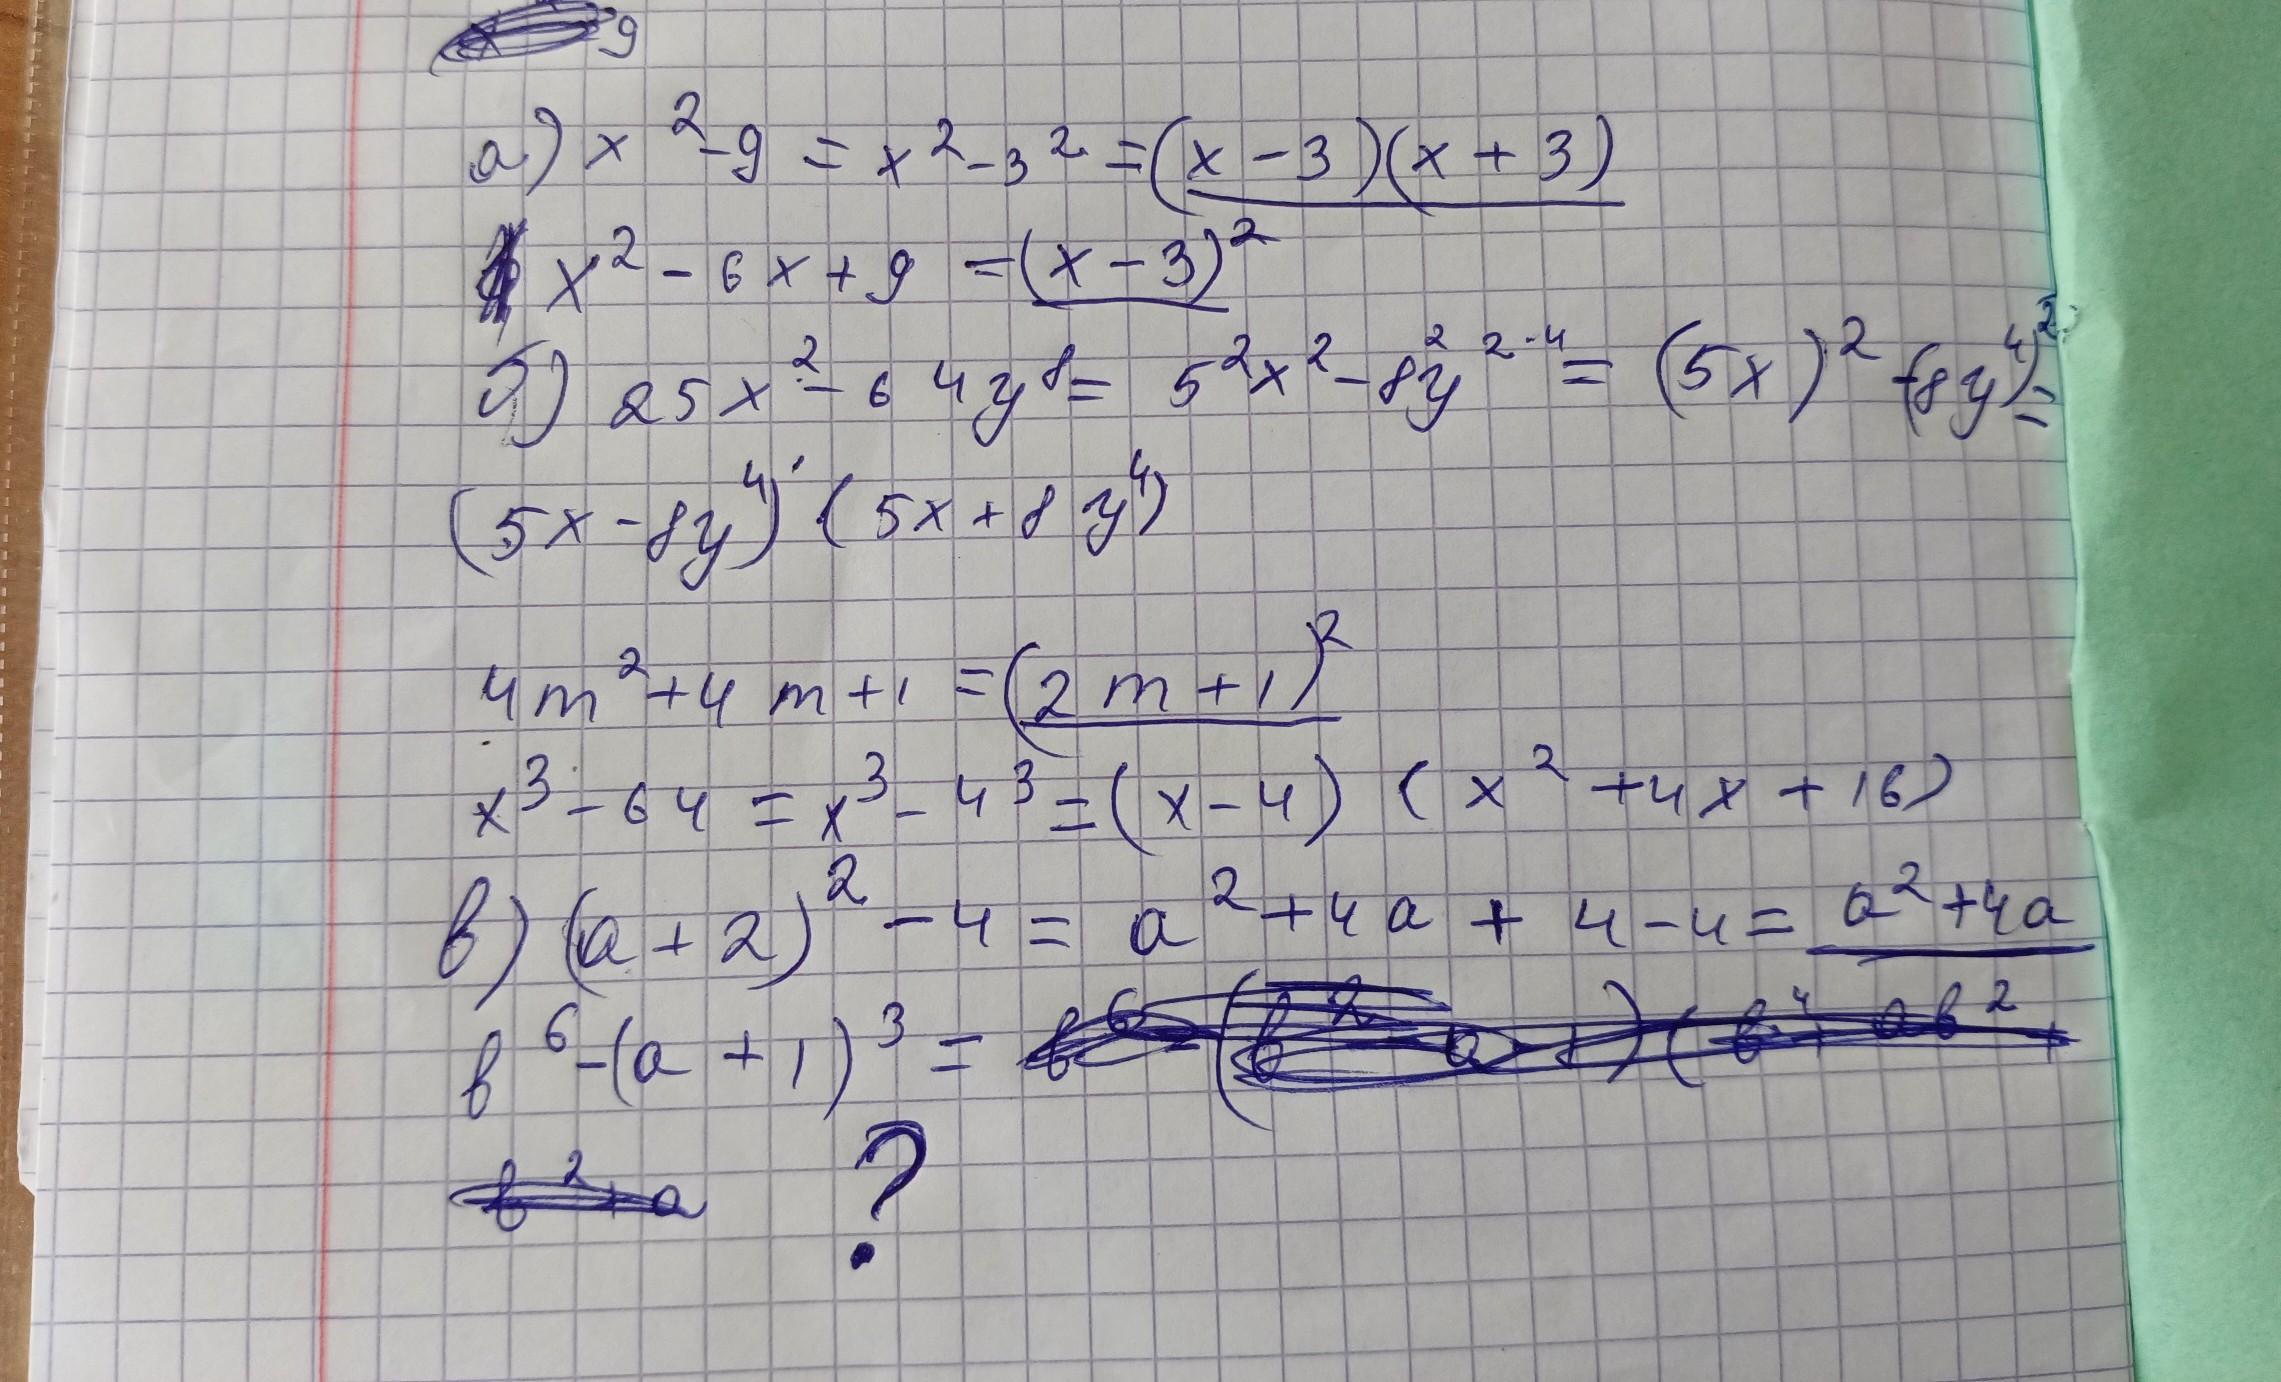 9
а) x² - 9 = x² - 3² = (x - 3)(x + 3)
x² - 6x + 9 = (x - 3)²
б) 25x² - 64y⁸ = 5²x² - 8²y²·⁴ = (5x)² - (8y⁴)² =
(5x - 8y⁴) · (5x + 8y⁴)
4m² + 4m + 1 = (2m + 1)²
x³ - 64 = x³ - 4³ = (x - 4) (x² + 4x + 16)
в) (a + 2)² - 4 = a² + 4a + 4 - 4 = a² + 4a
b⁶ - (a + 1)³ =
?